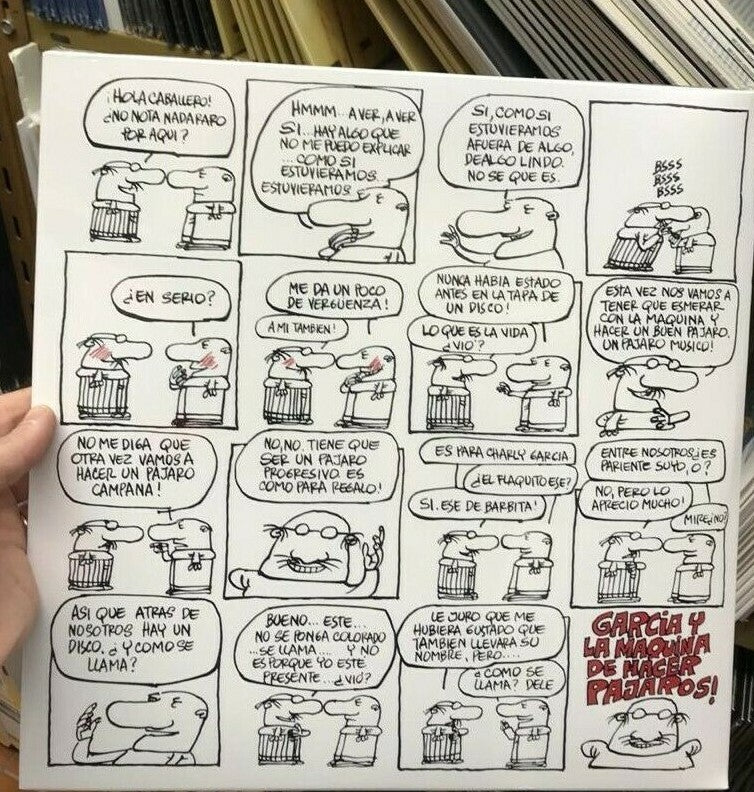 ¡HOLA CABALLERO!
¿NO NOTA NADA RARO
POR AQUI?
HMMM... A VER, A VER
SI... HAY ALGO QUE
NO ME PUEDO EXPLICAR
... COMO SI
ESTUVIERAMOS
ESTUVIERAMOS
SI, COMO SI
ESTUVIERAMOS
AFUERA DE ALGO,
DE ALGO LINDO.
NO SE QUE ES.
BSSS
BSSS
BSSS
¿EN SERIO?
ME DA UN POCO
DE VERGUENZA!
A MI TAMBIEN!
NUNCA HABIA ESTADO
ANTES EN LA TAPA DE
UN DISCO!
LO QUE ES LA VIDA
¿VIO?
ESTA VEZ NOS VAMOS A
TENER QUE ESMERAR
CON LA MAQUINA Y
HACER UN BUEN PAJARO.
UN PAJARO MUSICO!
NO ME DIGA QUE
OTRA VEZ VAMOS A
HACER UN PAJARO
CAMPANA!
NO, NO. TIENE QUE
SER UN PAJARO
PROGRESIVO ES
COMO PARA REGALO!
ES PARA CHARLY GARCIA
¿EL FLAQUITO ESE?
SI. ESE DE BARBITA!
ENTRE NOSOTROS ¿ES
PARIENTE SUYO, O?
NO, PERO LO
APRECIO MUCHO!
MIRE ¿NO?
ASI QUE ATRAS DE
NOSOTROS HAY UN
DISCO. ¿Y COMO SE
LLAMA?
BUENO... ESTE...
NO SE PONGA COLORADO
...SE LLAMA.... Y NO
ES PORQUE YO ESTE
PRESENTE... ¿VIO?
LE JURO QUE ME
HUBIERA GUSTADO QUE
TAMBIEN LLEVARA SU
NOMBRE, PERO....
¿COMO SE
LLAMA? DELE
GARCIA Y
LA MAQUINA
DE HACER
PAJAROS!